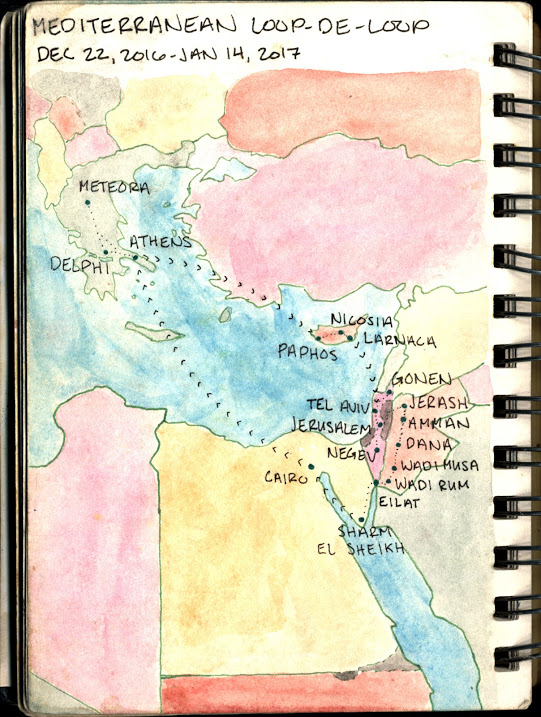 MEDITERRANEAN LOUP-DE-LOUP
DEC 22, 2016-JAN 14, 2017
METEORA
ATHENS
DELPHI
NICOSIA
PAPHOS
LARNACA
GONEN
TEL AVIV
JERASH
JERUSALEM
AMMAN
DANA
NEGEV
WADI MUSA
CAIRO
WADI RUM
EILAT
SHARM
EL SHEIKH